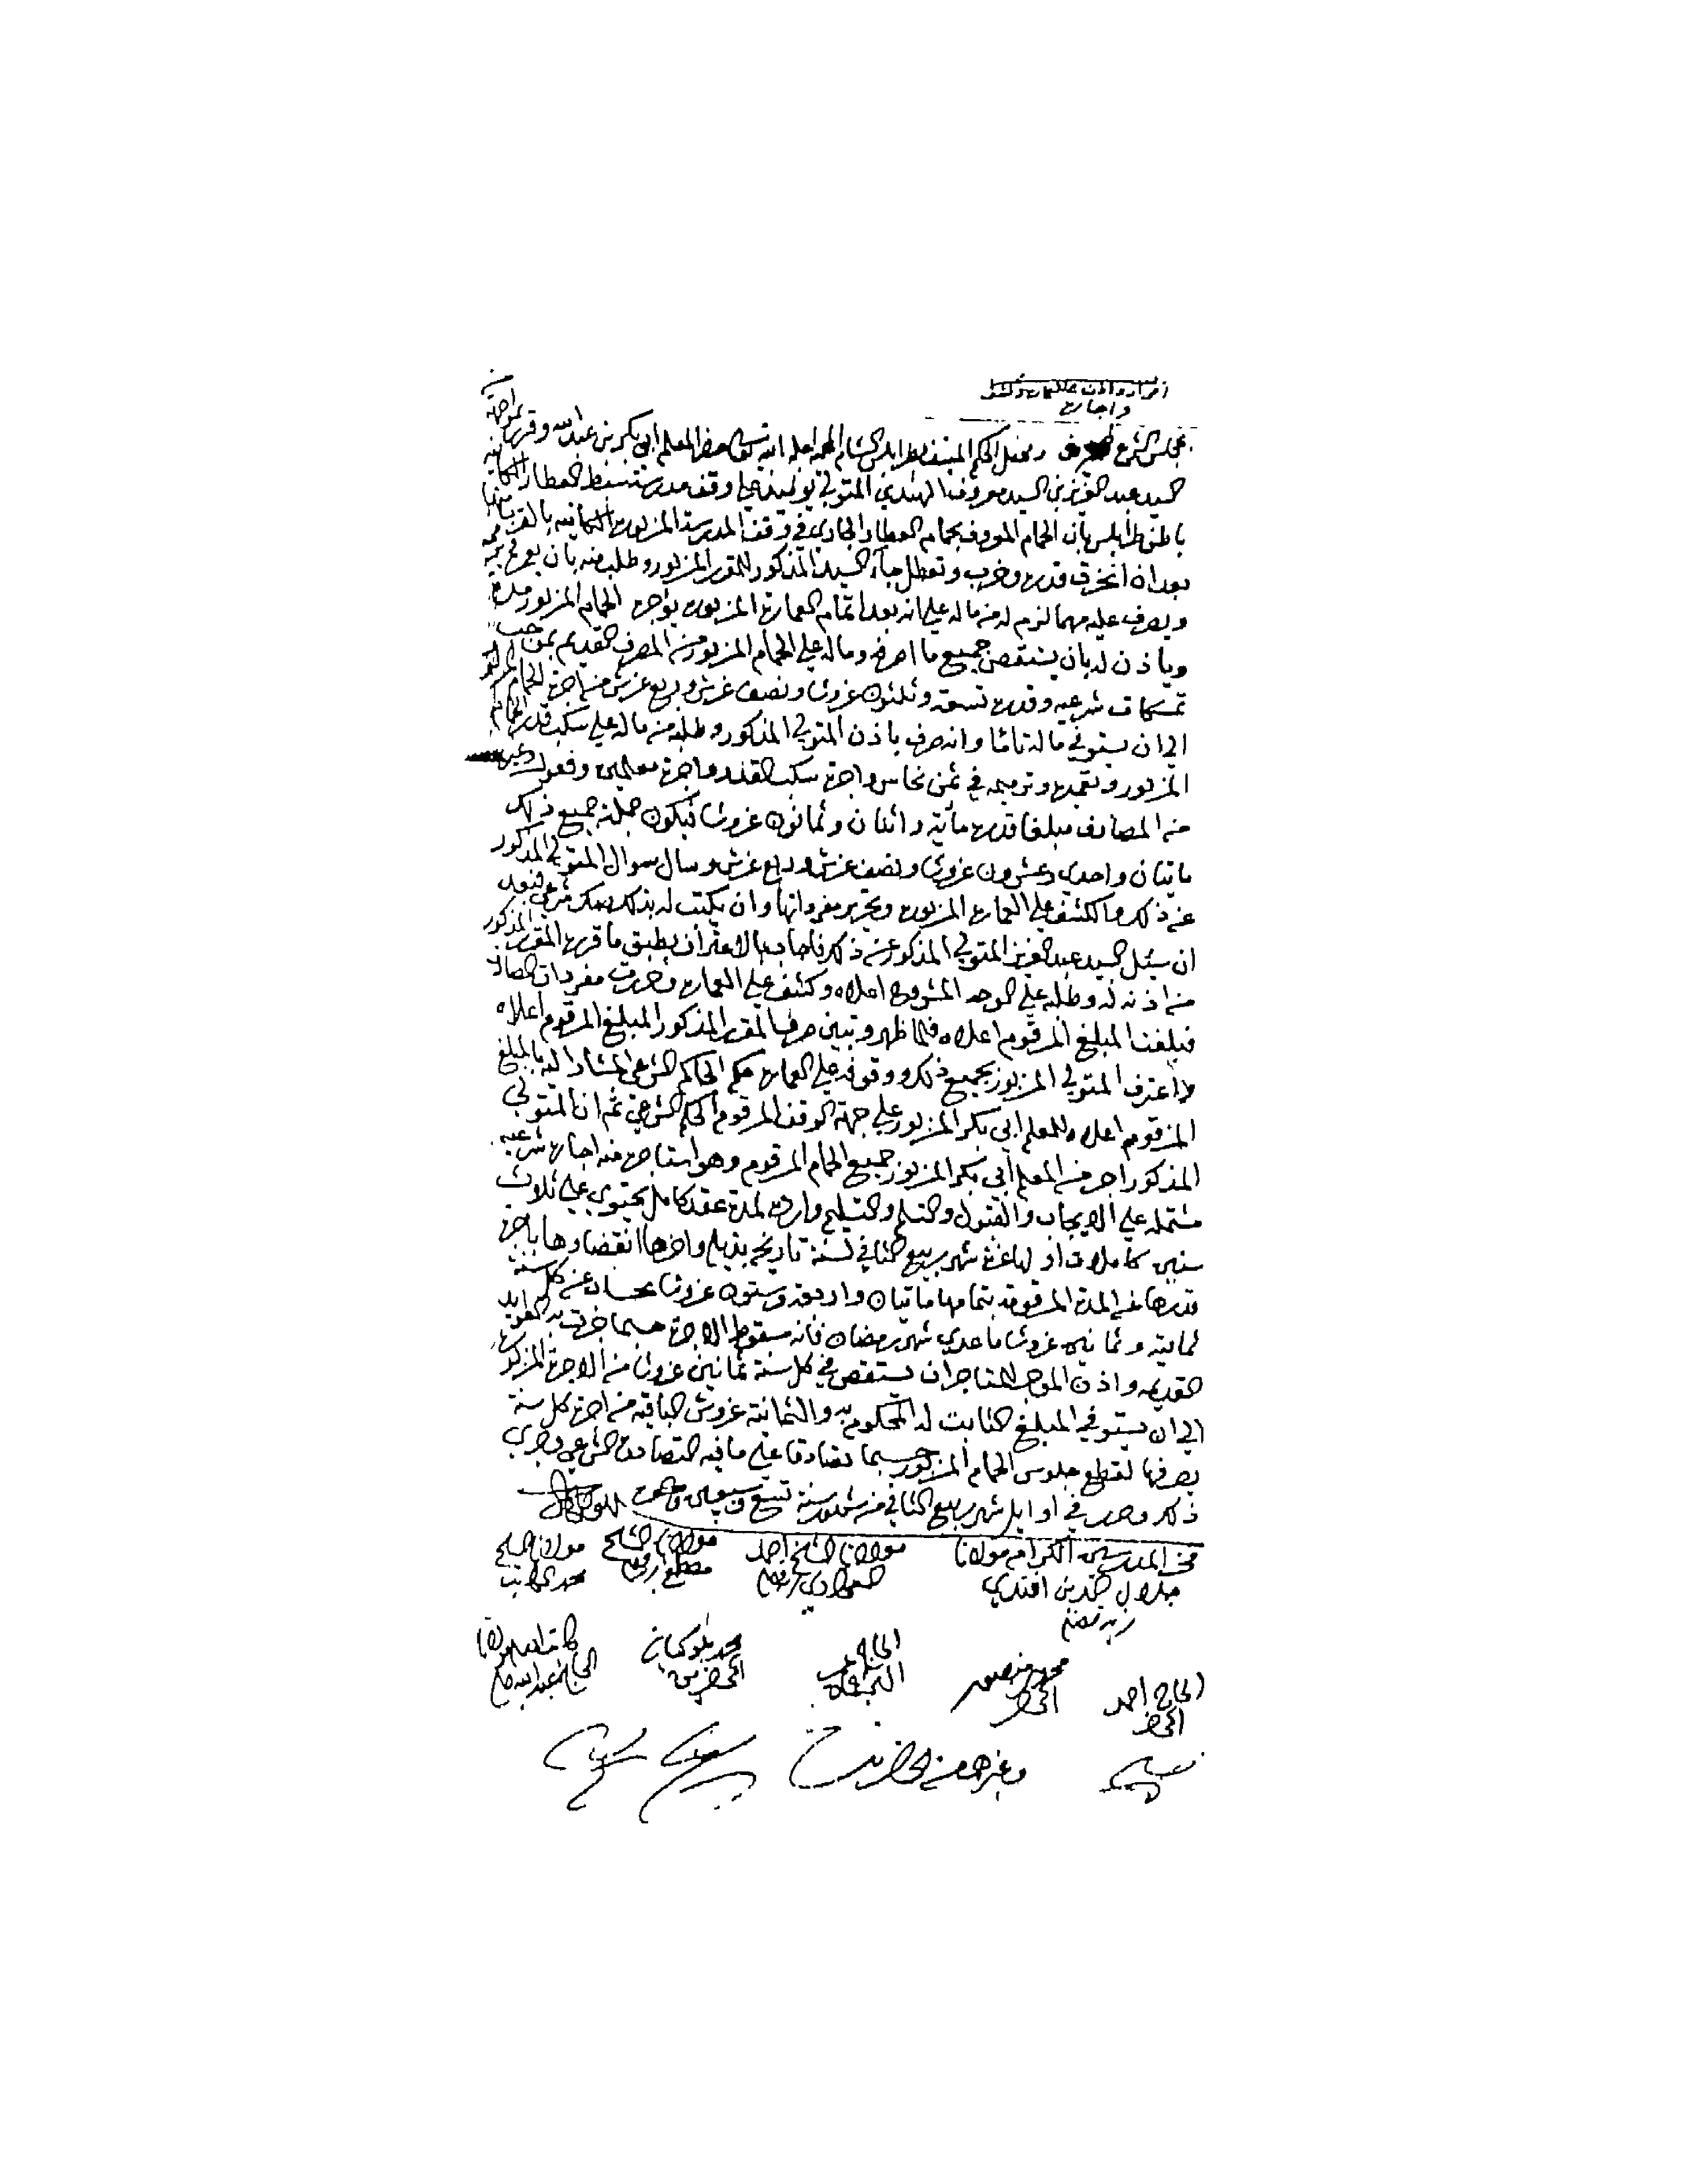 اقرار واذن على عمارة وكشف
واجارة
بمجلس الشرع ومحفل الحكم المنيف بطرابلس الشام المحمية اعلاه الله تعالى حضر المعلم ابي بكر بن عبد الله وقرر بمواجهة
السيد عبد العزيز بن السيد معروف الهندي المتولي يوميذ على وقف مدرسة العطار الكاينة
باطن طرابلس بان الحمام المعروف بحمام العطار الجاري في وقف المدرسة المزبورة الكاينة بالقرب منها
بعد ان انخرق قدره وخرب وتعطل جاء السيد المذكور للمقرر المزبور وطلب منه بان يعمره
ويصرف عليه مهما لزم له من ماله على انه بعد اتمام العمارة المزبورة يؤجره الحمام المزبور مدة
وياذن له بان يستقص جميع ما اصرفه وماله على الحمام المزبور من المصرف القديم بموجب
تمسكات شرعيه وقدره تسعة وثلثون غروشا ونصف غرش وربع غرش من اجرة الحمام المزبور
الى ان يستوفي ماله تاما وانه صرف باذن المتولي المذكور وطلبه من ماله على سكب قدر الحمام
المزبور وتعميره وترميمه في ثمن نحاس واجرة سكب القدر واجرة معلمين وفعول وغيره
من المصارف مبلغا قدره مائة واثنان وثمانون غروشا فيكون جملة جميع ذلك
مايتان واحدى وعشرون غروشا ونصف غرش وربع غرش وسال سوال المتولي المذكور
عن ذلك والكشف على العمارة المزبورة وتحرير مفرداتها وان يكتب له بذلك صك شرعي فبعد
ان سئل السيد عبد العزيز المتولي المذكور عن ذلك فاجاب بالاعتراف بطبق ما قرره المقرر المذكور
من اذنه له وطلبه على الوجه المشروح اعلاه وكشف على العمارة وحررت مفردات
فبلغت المبلغ المرقوم اعلاه فلما ظهر وتبين صرف المقرر المذكور المبلغ المرقوم اعلاه
واعترف المتولي المزبور بجميع ذلك ووقوفه على العمارة حكم الحاكم الشرعي المشار اليه بالمبلغ
المرقوم اعلاه للمعلم ابي بكر المزبور على جهة الوقف المرقوم الحكم الشرعي ثم ان المتولي
المذكور اجر من المعلم ابي بكر المزبور جميع الحمام المرقوم وهو استاجره منه اجارة شرعيه
مشتملة على الايجاب والقبول والتسلم والتسليم واردة لمدة عقد كامل يحتوي على ثلاث
سنين كاملات اولها غرة شهر ربيع الثاني لسنة تاريخه بذيله واخرها انقضاوها باجرة
قدرها عن المدة المرقومة بتمامها مايتان واربعة وستون غروشا بحساب عن كل سنة
ثمانية وثمانين غروشا ما عدى شهر رمضان فانه مسقوط الاجرة حسبما جرت به العوايد
القديمه واذن الموجر للمستاجر ان يستقص في كل سنة ثمانين غروشا من الاجرة المزبورة
الى ان يستوفي المبلغ الثابت له المحكوم به والثمانية غروش الباقية من اجرة كل سنة
يصرفها لقطع جلوس الحمام المزبور حسبما تصادقا على ما فيه التصادق الشرعي وجرى
ذلك وحرر في اوايل شهر ربيع الثاني من شهور سنة تسع وسبعين
فخر المدرسين الكرام مولانا
جلال الدين افندي
زيد فضله
مولانا الشيخ احمد
مولانا الشيخ
مصطفى
مولانا الشيخ
محمد الكاتب
الحاج احمد
المحضر
محمد بن منصور
المحضر
الحاج
محمد بلوكباشي
المحضرين
كاتبه مولانا
الحاج عبد الله
وغيرهم من الحاضرين